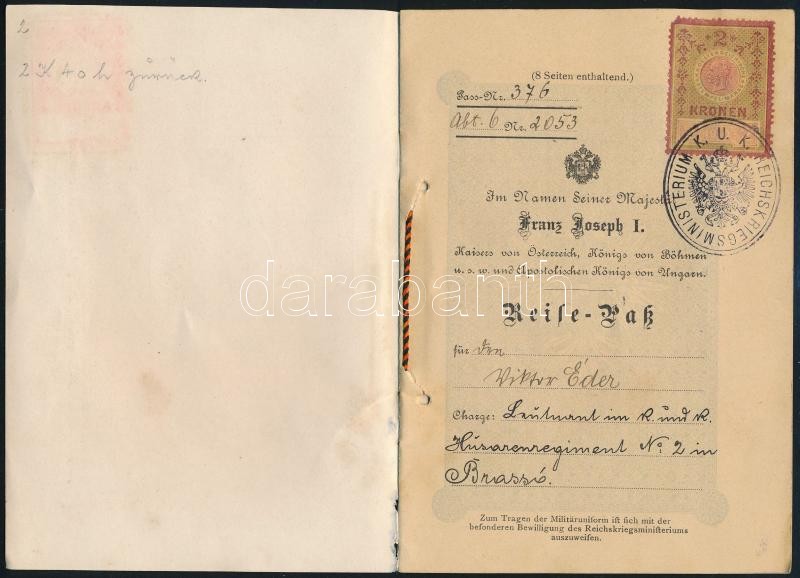 2
2 K 40 h zurück.
(8 Seiten enthaltend.)
Pass-Nr. 376
Abt. 6 Nr. 2053
2
KRONEN
K. U. K. REICHSKRIEGSMINISTERIUM
Im Namen Seiner Majestä
Franz Joseph I.
Kaisers von Österreich, Königs von Böhmen
u. s. w. und Apostolischen Königs von Ungarn.
darabanth
Reiſe-Paß
für den
Viktor Éder
Charge: Leutnant im k. und k.
Husarenregiment No. 2 in
Brassó.
Zum Tragen der Militäruniform iſt ſich mit der
beſonderen Bewilligung des Reichskriegsminiſteriums
auszuweiſen.